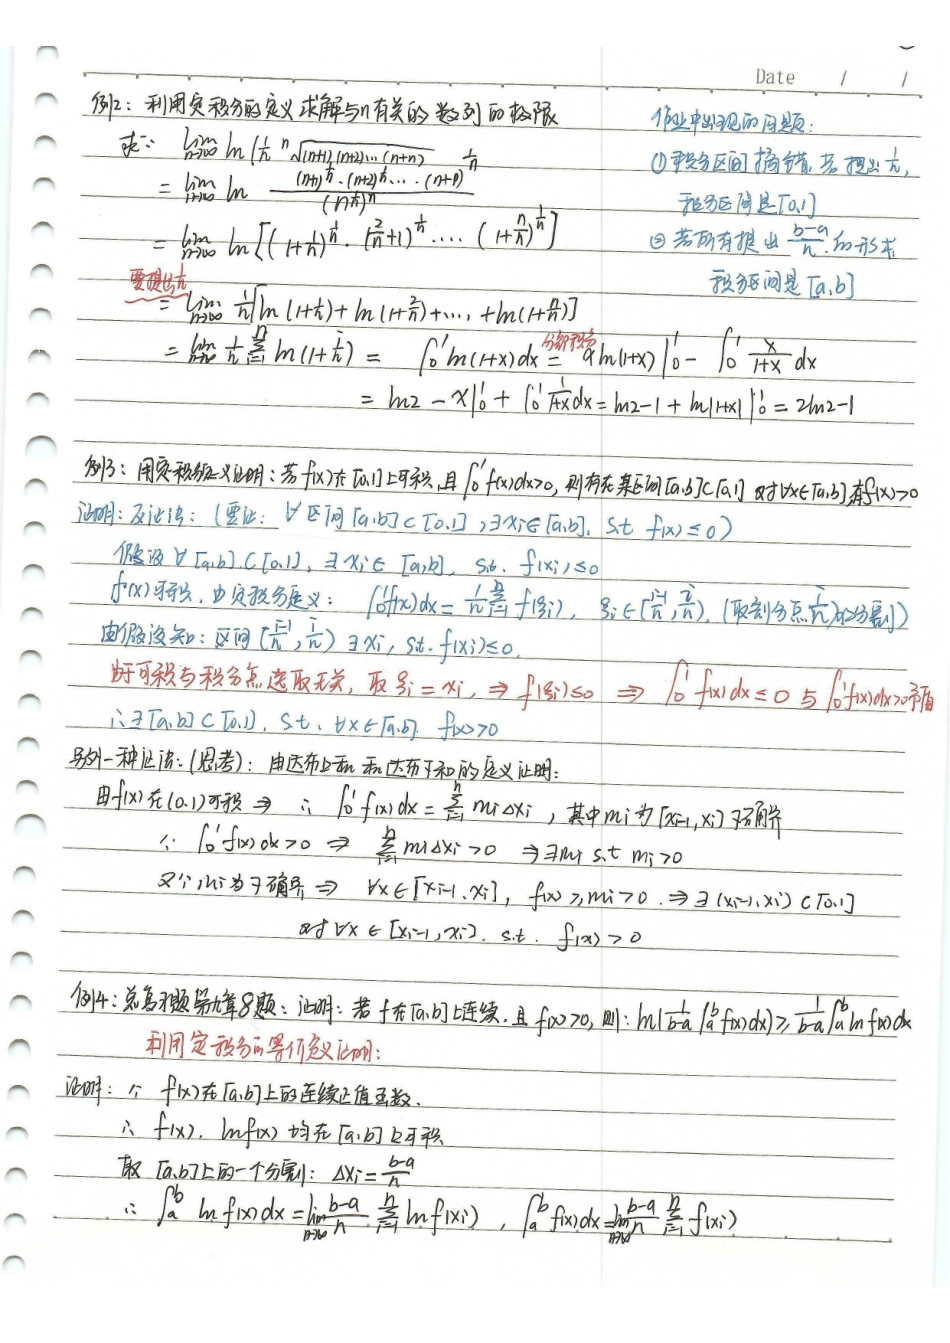 Date / /
例2：利用定积分的定义求解与n有关的数列的极限
求：lim n→∞ ln(1/n ⁿ√(n+1)(n+2)…(n+n)
= lim n→∞ ln (n+1)^(1/n)·(n+2)^(1/n)·…·(n+n)^(1/n) / (n^(1/n))^n
= lim n→∞ ln[(1+1/n)^(1/n)·(2/n+1)^(1/n)….(1+n/n)^(1/n)]
要提出1/n
= lim n→∞ 1/n[ln(1+1/n)+ln(1+2/n)+…,+ln(1+n/n)]
= lim n→∞ 1/n Σ_{i=1}^n ln(1+i/n) = ∫₀¹ ln(1+x)dx 分部积分 = xln(1+x)|₀¹ - ∫₀¹ x/(1+x) dx
= ln2 - x|₀¹ + ∫₀¹ 1/(1+x) dx = ln2-1 + ln|1+x| |₀¹ = 2ln2-1
作业中出现的问题：
① 积分区间搞错，若提出1/n，
积分区间是[0,1]
② 若所有提出 (b-a)/n 的形式
积分区间是[a,b]
例3：用定积分定义证明：若f(x)在[0,1]上可积，且∫₀¹f(x)dx>0，则存在某区间[a,b]⊂[0,1] 对∀x∈[a,b]有f(x)>0
证明：反证法：(要证：∀区间[a,b]⊂[0,1]，∃xi∈[a,b]，s.t f(x)≤0)
假设∀[a,b]⊂[0,1]，∃xi∈[a,b]，s.t. f(xi)≤0
f(x)可积，由定积分定义：∫₀¹f(x)dx = 1/n Σ_{i=1}^n f(ξi)，ξi∈[(i-1)/n, i/n)，(取割分点 i/n 的分割)
由假设知：区间[(i-1)/n, i/n) ∃xi，s.t. f(xi)≤0，
由于可积与积分点选取无关，取ξi=xi，⇒ f(ξi)≤0 ⇒ ∫₀¹f(x)dx≤0 与∫₀¹f(x)dx>0矛盾
∴∃[a,b]⊂[0,1]，s.t. ∀x∈[a,b] f(x)>0
另外一种证法：(思考)：由达布上和和达布下和的定义证明：
由f(x)在(0,1)可积 ⇒ ∴ ∫₀¹f(x)dx = Σ_{i=1}^n mi△xi，其中mi为[xi-1,xi)下确界
∵ ∫₀¹f(x)dx>0 ⇒ Σ_{i=1}^n mi△xi>0 ⇒∃mi s.t mi>0
又∵mi为下确界 ⇒ ∀x∈[xi-1,xi]，f(x)≥mi>0 .⇒∃(xi-1,xi)⊂[0,1]
对∀x∈[xi-1,xi). s.t. f(x)>0
例4：总复习题第九章8题：证明：若f在[a,b]上连续，且f(x)>0，则：ln(1/(b-a) ∫ₐᵇf(x)dx)≥1/(b-a) ∫ₐᵇ ln f(x)dx
利用定积分的等价定义证明：
证明：∵ f(x)在[a,b]上的连续正值函数、
∴ f(x)，lnf(x)均在[a,b]上可积
取[a,b]上的一个分割：△xi=(b-a)/n
∴ ∫ₐᵇ ln f(x)dx = lim n→∞ (b-a)/n Σ_{i=1}^n lnf(xi)，∫ₐᵇ f(x)dx = lim n→∞ (b-a)/n Σ_{i=1}^n f(xi)